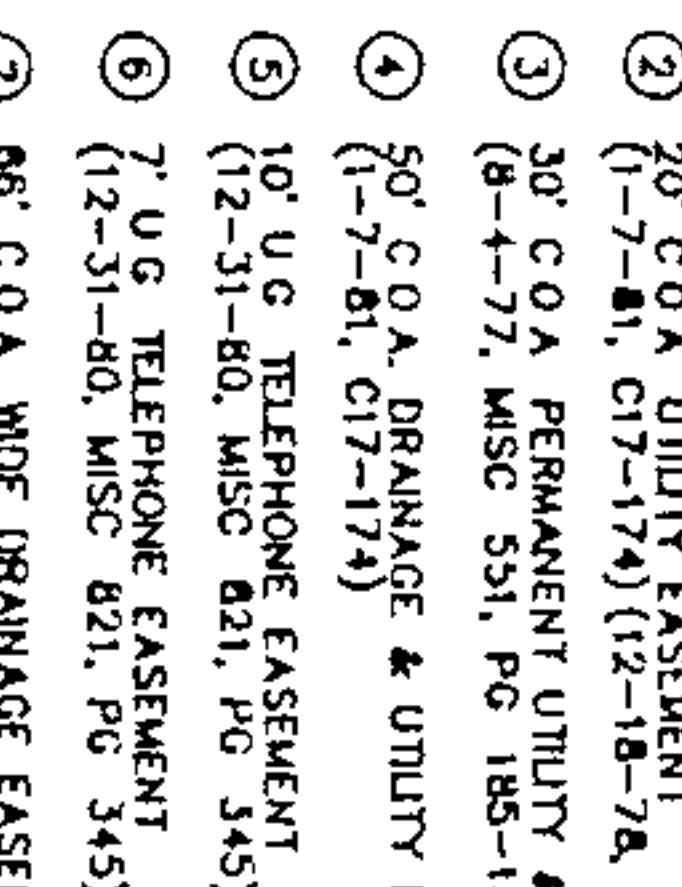 2 20' C O A UTILITY EASEMENT
(1-7-81, C17-174) (12-18-78,
3 30' C O A PERMANENT UTILITY &
(8-4-77, MISC 551, PG 185-
4 50' C O A. DRAINAGE & UTILITY
(1-7-81, C17-174)
5 10' U G TELEPHONE EASEMENT
(12-31-80, MISC 821, PG 345)
6 7' U G TELEPHONE EASEMENT
(12-31-80, MISC 821, PG 345)
7 C O A WIDE DRAINAGE